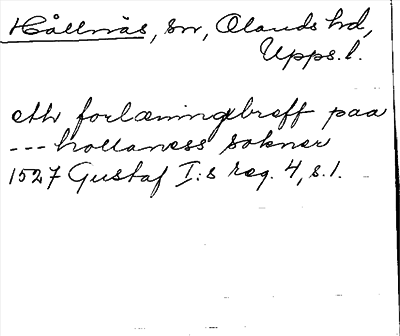 Hållnäs, sn, Olands hd,
Upps.l.
eth forlæningxbreff paa
--- hollaness sokner
1527 Gustaf I:s reg. 4, s.1.